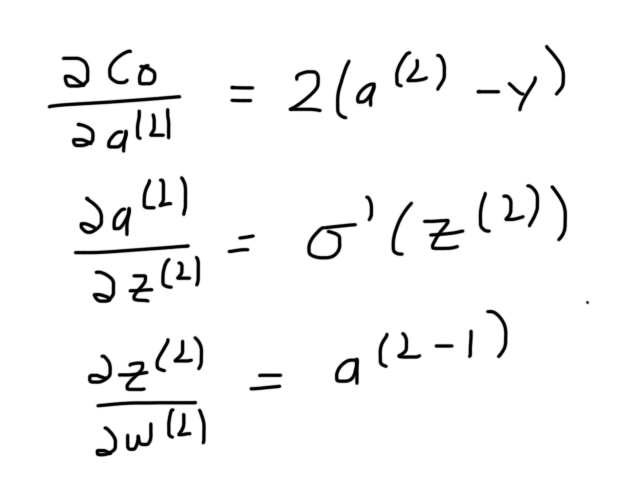 ∂C₀/∂a^(L) = 2(a^(L) − y)
∂a^(L)/∂z^(L) = σ'(z^(L))
∂z^(L)/∂w^(L) = a^(L−1)